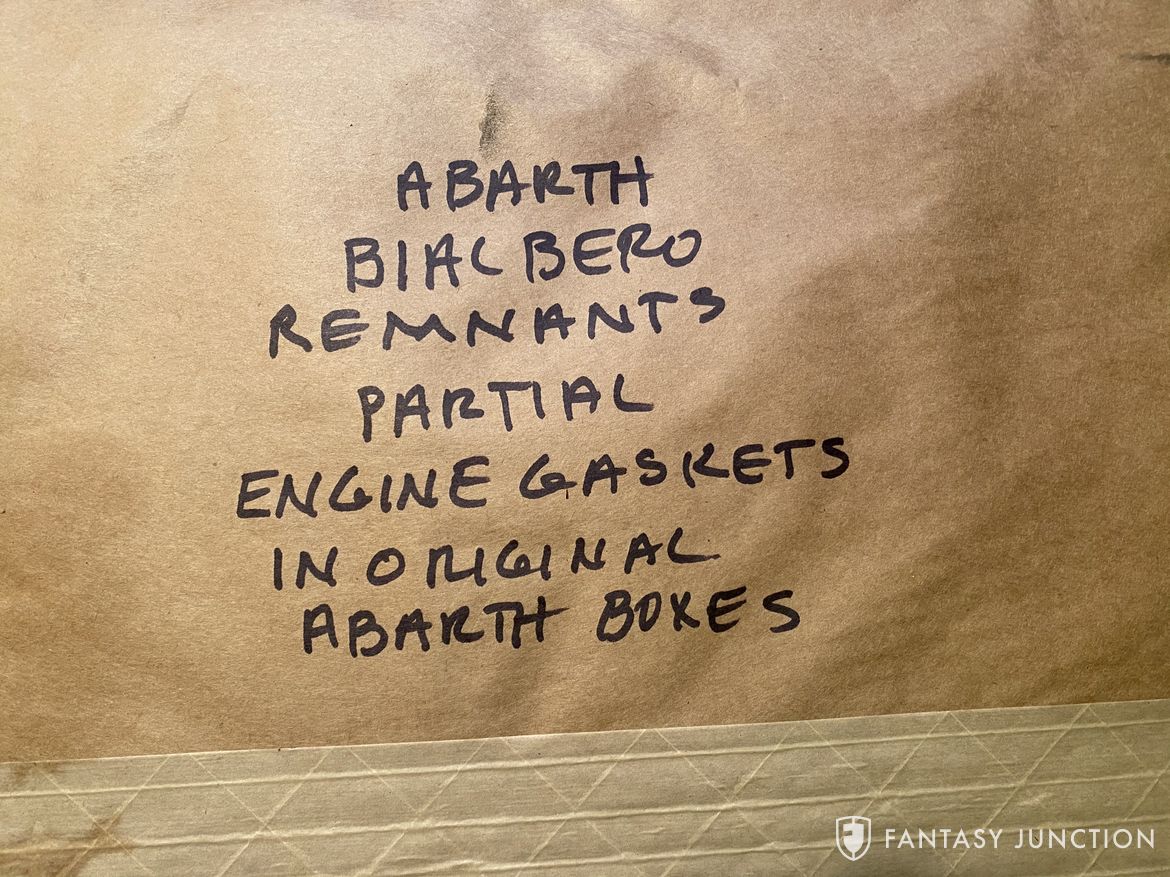 ABARTH
BIALBERO
REMNANTS
PARTIAL
ENGINE GASKETS
IN ORIGINAL
ABARTH BOXES
FANTASY JUNCTION